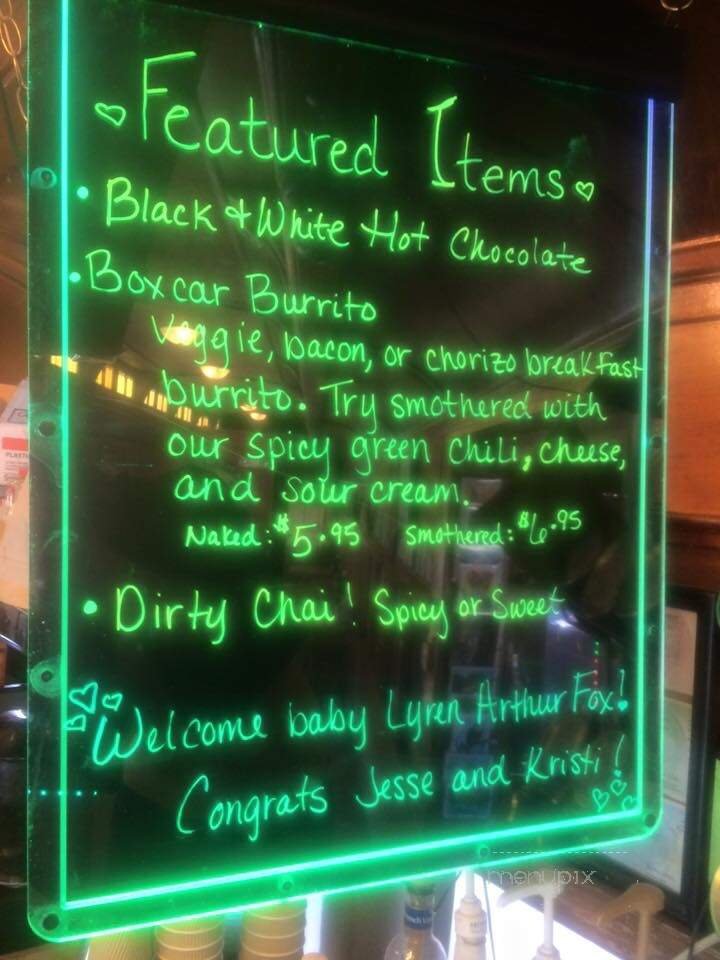 ♡Featured Items♡
• Black & White Hot Chocolate
• Boxcar Burrito
Veggie, bacon, or chorizo breakfast
burrito. Try smothered with
our spicy green chili, cheese,
and sour cream.
Naked: $5.95 smothered: $6.95
• Dirty Chai! Spicy or Sweet
Welcome baby Lyren Arthur Fox!
Congrats Jesse and Kristi!
menupix